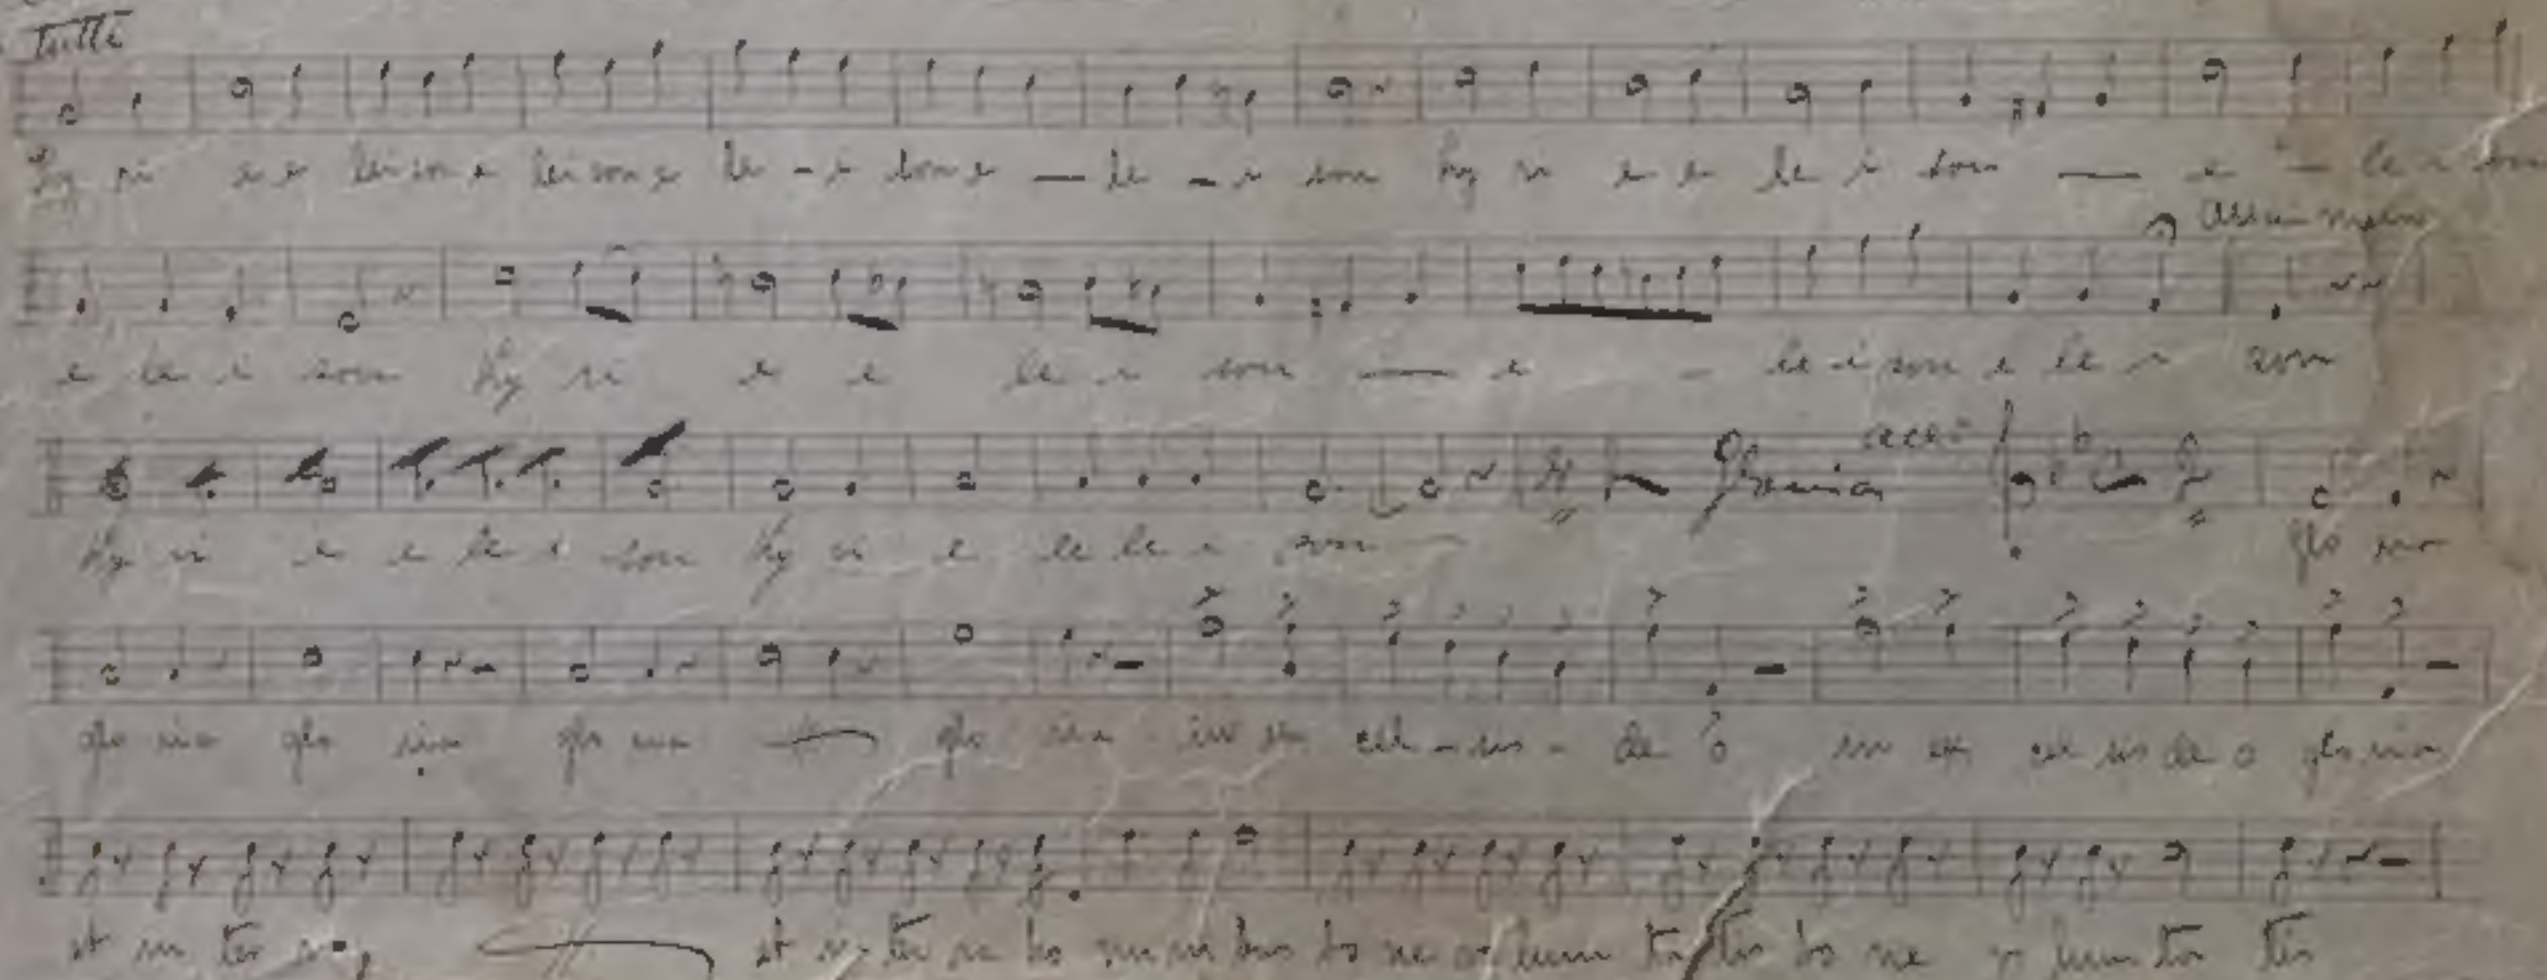 Tutti
Ky ri e e lei son e lei son e le - i son e — le - i son Ky ri e e le i son — e - le i son
e le i son Ky ri e e le i son — e - le i son e le i son
Gloria
Ky ri e e le i son Ky ri e e le i son glo ria
glo ria glo ria glo ria glo ria - in ex cel - sis - de o in ex cel sis de o gloria
et in ter ra et in ter ra ho mi ni bus bo ne vo lun ta tis bo ne vo lun ta tis